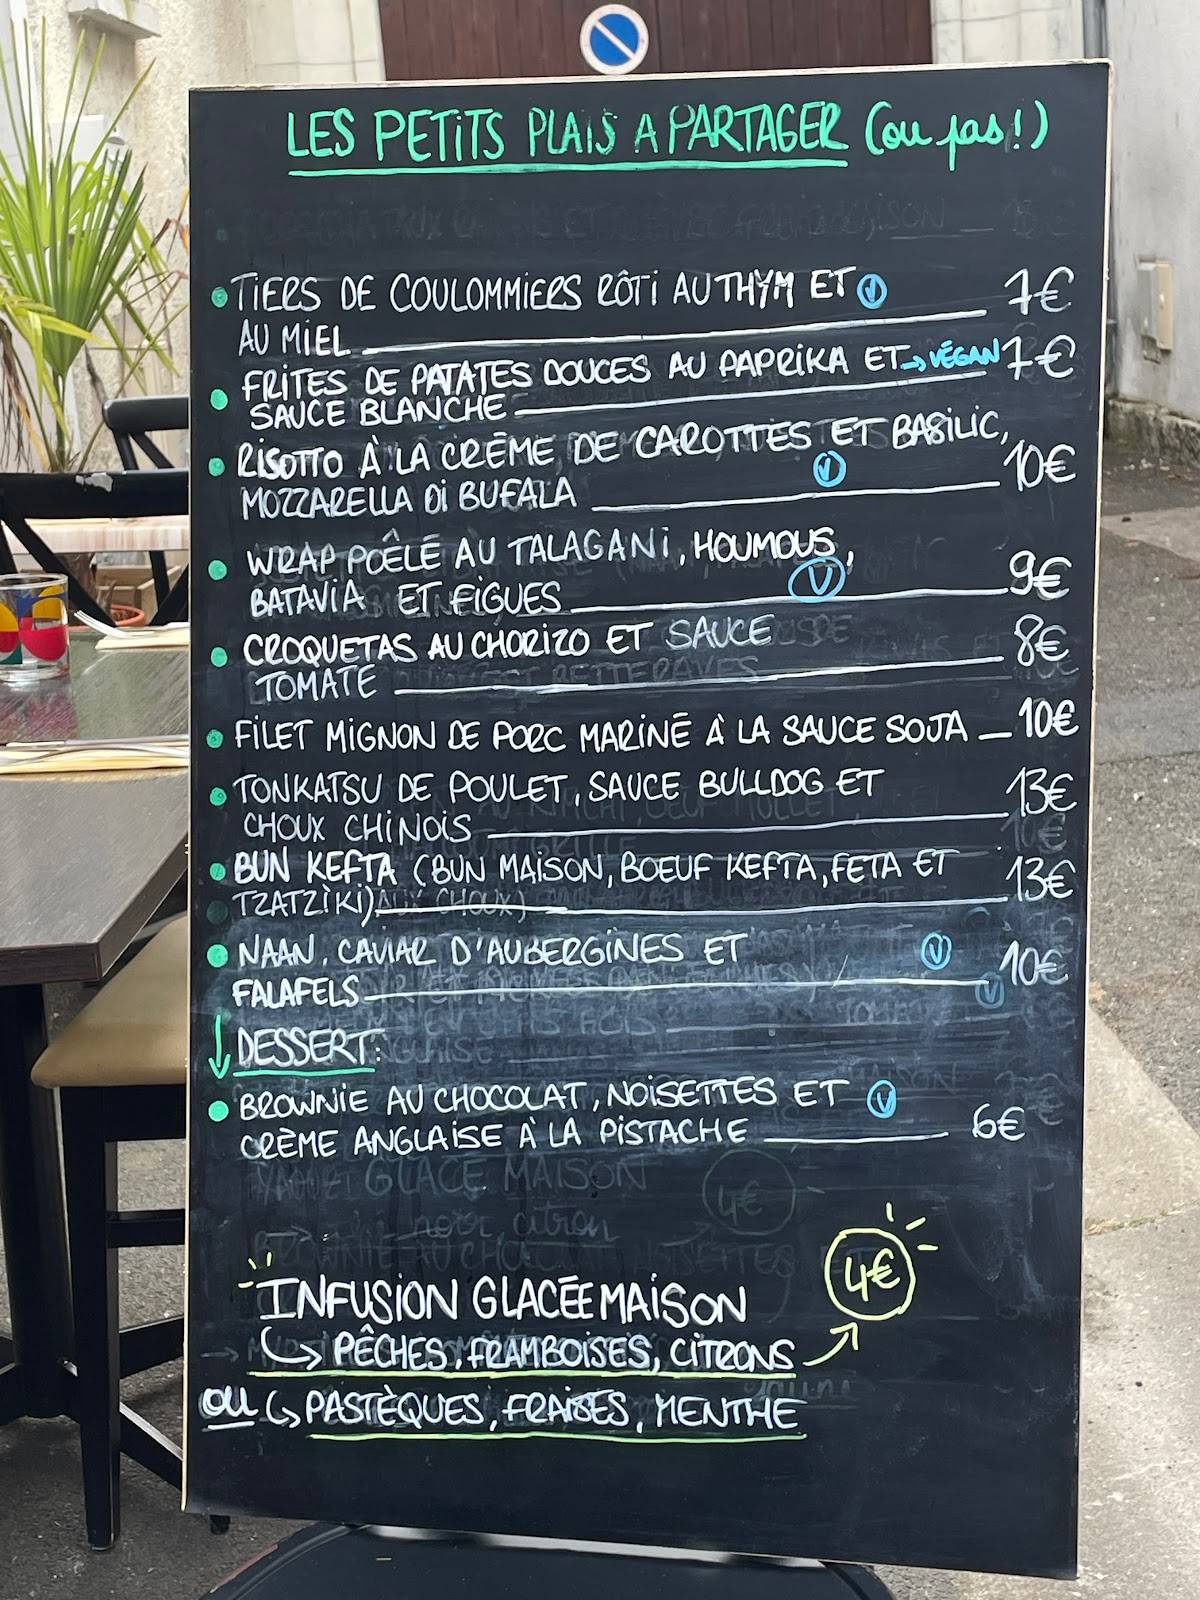 LES PETITS PLATS A PARTAGER (ou pas!)
• TIERS DE COULOMMIERS RÔTI AU THYM ET Ⓥ 7€
AU MIEL
• FRITES DE PATATES DOUCES AU PAPRIKA ET → VÉGAN 7€
SAUCE BLANCHE
• RISOTTO À LA CRÈME DE CAROTTES ET BASILIC,
MOZZARELLA DI BUFALA Ⓥ 10€
• WRAP POÊLÉ AU TALAGANI, HOUMOUS,
BATAVIA ET FIGUES Ⓥ 9€
• CROQUETAS AU CHORIZO ET SAUCE 8€
TOMATE
• FILET MIGNON DE PORC MARINÉ À LA SAUCE SOJA 10€
• TONKATSU DE POULET, SAUCE BULLDOG ET 13€
CHOUX CHINOIS
• BUN KEFTA (BUN MAISON, BOEUF KEFTA, FETA ET 13€
TZATZIKI)
• NAAN, CAVIAR D'AUBERGINES ET Ⓥ 10€
FALAFELS
↓ DESSERT:
• BROWNIE AU CHOCOLAT, NOISETTES ET Ⓥ
CRÈME ANGLAISE À LA PISTACHE 6€
INFUSION GLACÉE MAISON 4€
↳ PÊCHES, FRAMBOISES, CITRONS
ou ↳ PASTÈQUES, FRAISES, MENTHE